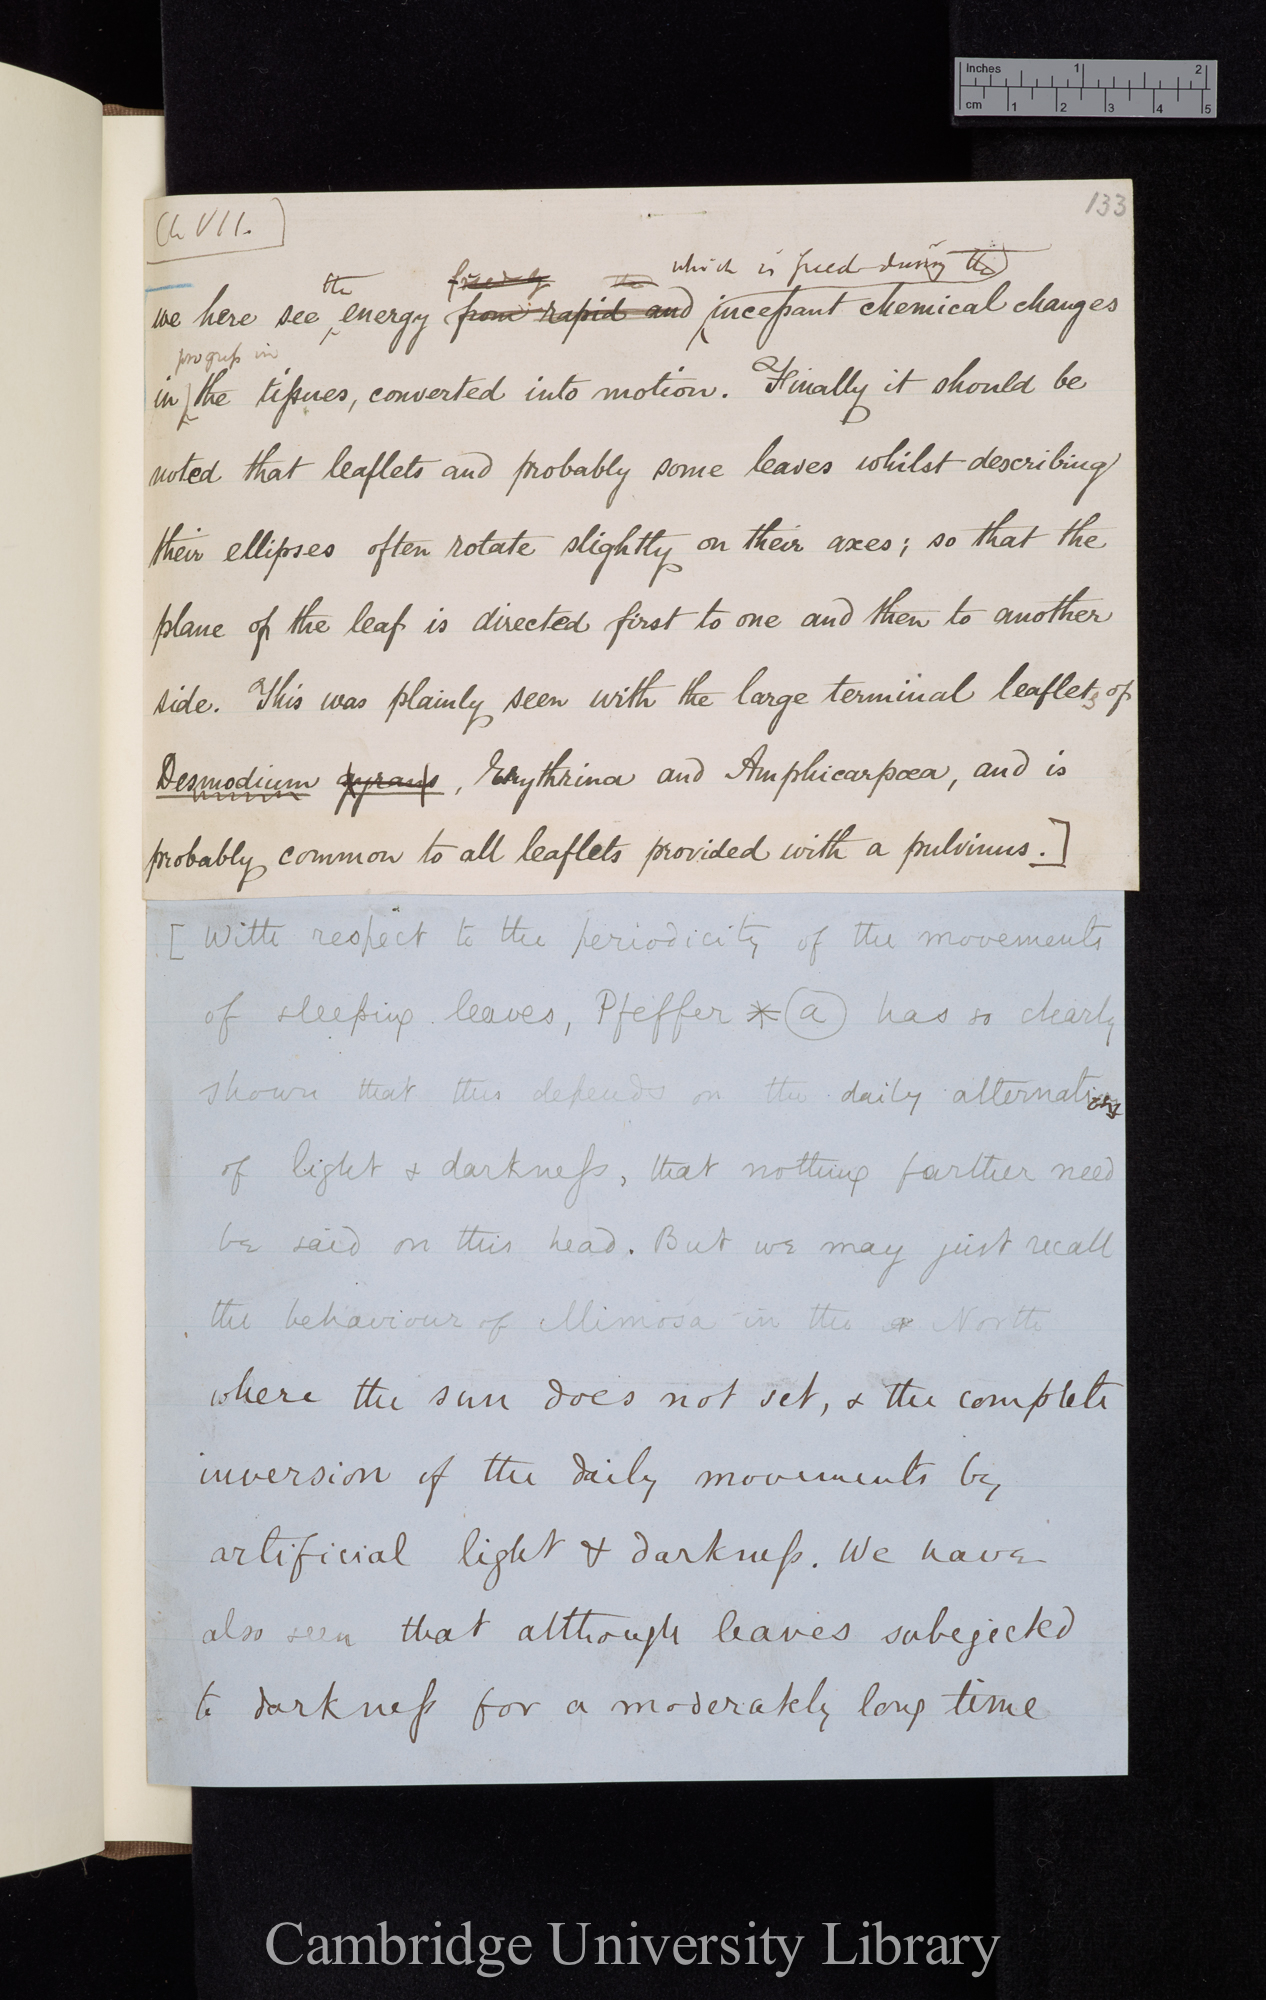 Inches 1 2
cm 1 2 3 4 5
133
Ch VII.]
freed by the which is freed during the
the
we here see energy from rapid and incessant chemical changes
progress in
in the tissues, converted into motion. Finally it should be
noted that leaflets and probably some leaves whilst describing
their ellipses often rotate slightly on their axes; so that the
plane of the leaf is directed first to one and then to another
side. This was plainly seen with the large terminal leaflets of
Desmodium gyrans, Erythrina and Amphicarpœa, and is
probably common to all leaflets provided with a pulvinus.]
[With respect to the periodicity of the movements
of sleeping leaves, Pfeffer * (a) has so clearly
shown that this depends on the daily alternations
of light & darkness, that nothing farther need
be said on this head. But we may just recall
the behaviour of Mimosa in the North
where the sun does not set, & the complete
inversion of the daily movements by
artificial light & darkness. We have
also seen that although leaves subjected
to darkness for a moderately long time
Cambridge University Library